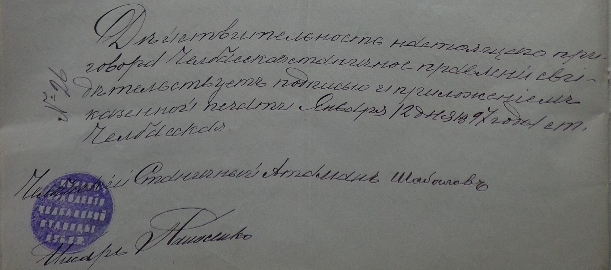 Дѣйствительность настоящего при-
говора Челбасское станичное правленіе сви-
дѣтельствуетъ подписью и приложеніемъ
казенной печати Января 12 дня 1897 года ст.
Челбасская
№ 26
Станичный Атаманъ Шаповаловъ
Писарь